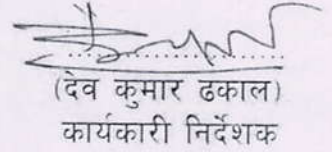 (देव कुमार ढकाल)
कार्यकारी निर्देशक